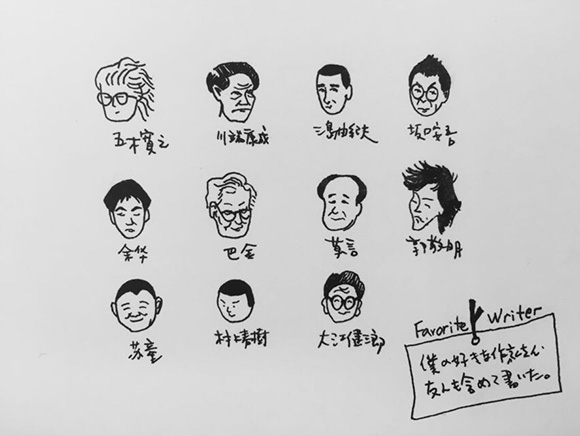 五木寛之
川端康成
三島由紀夫
坂口安吾
余华
巴金
莫言
郭敬明
苏童
村上春樹
大江健三郎
Favorite Writer
僕の好きな作家さん
友人も含めて書いた。